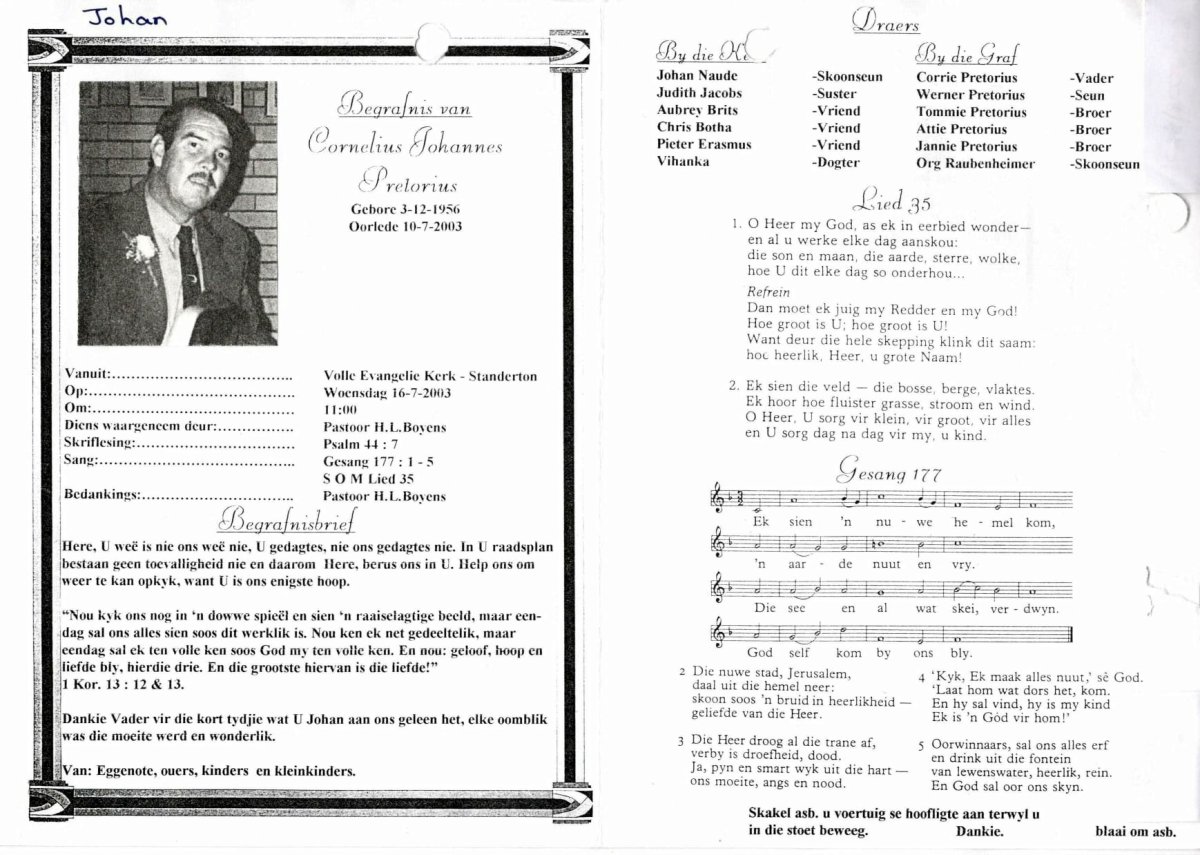 Johan
Begrafnis van
Cornelius Johannes
Pretorius
Gebore 3-12-1956
Oorlede 10-7-2003
Vanuit:................................. Volle Evangelie Kerk - Standerton
Op:..................................... Woensdag 16-7-2003
Om:..................................... 11:00
Diens waargeneem deur:.............. Pastoor H.L.Boyens
Skriflesing:............................. Psalm 44 : 7
Sang:.................................... Gesang 177 : 1 - 5
S O M Lied 35
Bedankings:............................ Pastoor H.L.Boyens
Begrafnisbrief
Here, U weë is nie ons weë nie, U gedagtes, nie ons gedagtes nie. In U raadsplan
bestaan geen toevalligheid nie en daarom Here, berus ons in U. Help ons om
weer te kan opkyk, want U is ons enigste hoop.
“Nou kyk ons nog in ‘n dowwe spieël en sien ‘n raaiselagtige beeld, maar een-
dag sal ons alles sien soos dit werklik is. Nou ken ek net gedeeltelik, maar
eendag sal ek ten volle ken soos God my ten volle ken. En nou: geloof, hoop en
liefde bly, hierdie drie. En die grootste hiervan is die liefde!”
1 Kor. 13 : 12 & 13.
Dankie Vader vir die kort tydjie wat U Johan aan ons geleen het, elke oomblik
was die moeite werd en wonderlik.
Van: Eggenote, ouers, kinders en kleinkinders.
Draers
By die By die Graf
Johan Naude -Skoonseun Corrie Pretorius -Vader
Judith Jacobs -Suster Werner Pretorius -Seun
Aubrey Brits -Vriend Tommie Pretorius -Broer
Chris Botha -Vriend Attie Pretorius -Broer
Pieter Erasmus -Vriend Jannie Pretorius -Broer
Vihanka -Dogter Org Raubenheimer -Skoonseun
Lied 35
1. O Heer my God, as ek in eerbied wonder—
en al u werke elke dag aanskou:
die son en maan, die aarde, sterre, wolke,
hoe U dit elke dag so onderhou...
Refrein
Dan moet ek juig my Redder en my God!
Hoe groot is U; hoe groot is U!
Want deur die hele skepping klink dit saam:
hoe heerlik, Heer, u grote Naam!
2. Ek sien die veld — die bosse, berge, vlaktes.
Ek hoor hoe fluister grasse, stroom en wind.
O Heer, U sorg vir klein, vir groot, vir alles
en U sorg dag na dag vir my, u kind.
Gesang 177
Ek sien 'n nu - we he - mel kom,
'n aar - de nuut en vry.
Die see en al wat skei, ver - dwyn.
God self kom by ons bly.
2 Die nuwe stad, Jerusalem,
daal uit die hemel neer:
skoon soos 'n bruid in heerlikheid —
geliefde van die Heer.
3 Die Heer droog al die trane af,
verby is droefheid, dood.
Ja, pyn en smart wyk uit die hart —
ons moeite, angs en nood.
4 ‘Kyk, Ek maak alles nuut,’ sê God.
‘Laat hom wat dors het, kom.
En hy sal vind, hy is my kind
Ek is 'n Gód vir hom!’
5 Oorwinnaars, sal ons alles erf
en drink uit die fontein
van lewenswater, heerlik, rein.
En God sal oor ons skyn.
Skakel asb. u voertuig se hoofligte aan terwyl u
in die stoet beweeg. Dankie. blaai om asb.